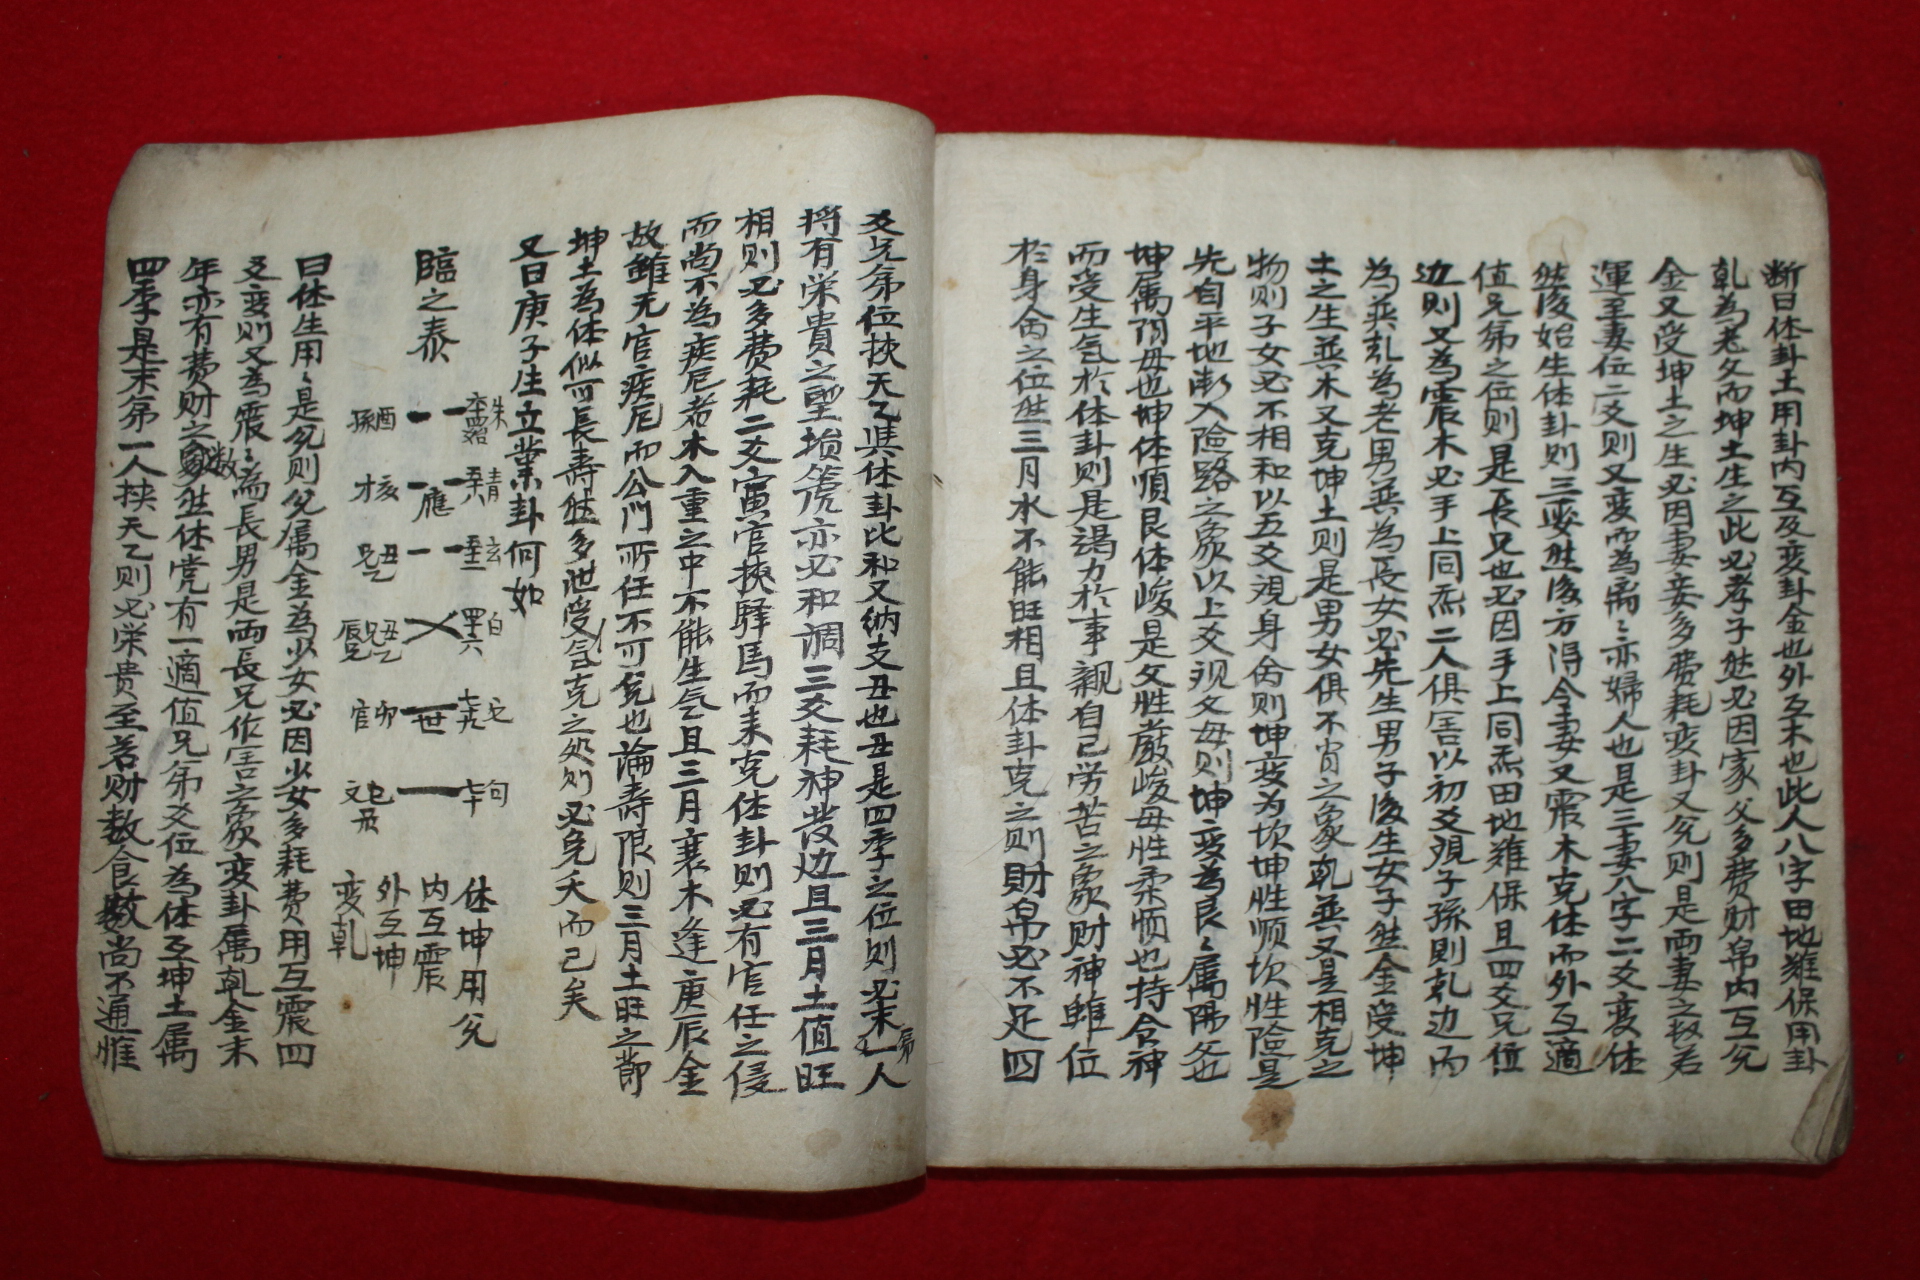 断曰体卦土用卦内互及变卦金也外互木也此人八字田地难保用卦
乾為老父而坤土生之此必孝子然必因家父多费财帛内互兌
金又受坤土之生必因妻妾多费耗变卦又兌则是两妻之权若
運至妻位二爻则又变而為离〻亦婦人也是三妻八字二爻变体
然後始生体卦则三娶然後方得令妻又震木克体而外互適
值兄弟之位则是長兄也必因手上同炁田地难保且四爻兄位
边则又為震木必手上同炁二人俱害以初爻观子孫则乾边而
為巽乾為老男巽為長女必先生男子後生女子然金受坤
土之生巽木又克坤土则是男女俱不肖之象乾巽又是相克之
物则子女必不相和以五爻观身命则坤变为坎坤性顺坎性险是
先自平地渐入险路之象以上爻观父母则坤变為艮〻属陽爻也
坤属阴母也坤体顺艮体峻是父性嚴峻母性柔顺也持合神
而受生气於体卦则是竭力於事親自己劳苦之象财神雖位
於身命之位然三月水不能旺相且体卦克之则財帛必不足四
爻兄弟位挟天乙與体卦比和又纳支丑也丑是四季之位则必末弟一人
将有荣貴之望埙篪亦必和调三爻耗神发边且三月土值旺
相则必多费耗二爻寅官挾驿馬而来克体卦则必有官任之侵
而尚不為疾厄者木入重之中不能生气且三月衰木逢庚辰金
故雖无官疾厄而公门所任不可免也論寿限则三月土旺之節
坤土為体似可長壽然多泄受气克之处则必免夭而已矣
又曰庚子生立業卦何如
臨之泰
朱 酉孫
青 應 亥才
玄 丑兄乙
白 六 丑兄乙 辰兄
世 卯官
句 巳文
体坤用兌
内互震
外互坤
变乾
曰体生用〻是兌则兌属金為少女必因少女多耗费用互震四
爻变则又為震〻為長男是両長兄作害之象变卦属乾金末
年亦有费财之数然体党有一適值兄弟爻位為体互坤土属
四季是末弟一人挟天乙则必荣贵至若财数食数尚不通惟